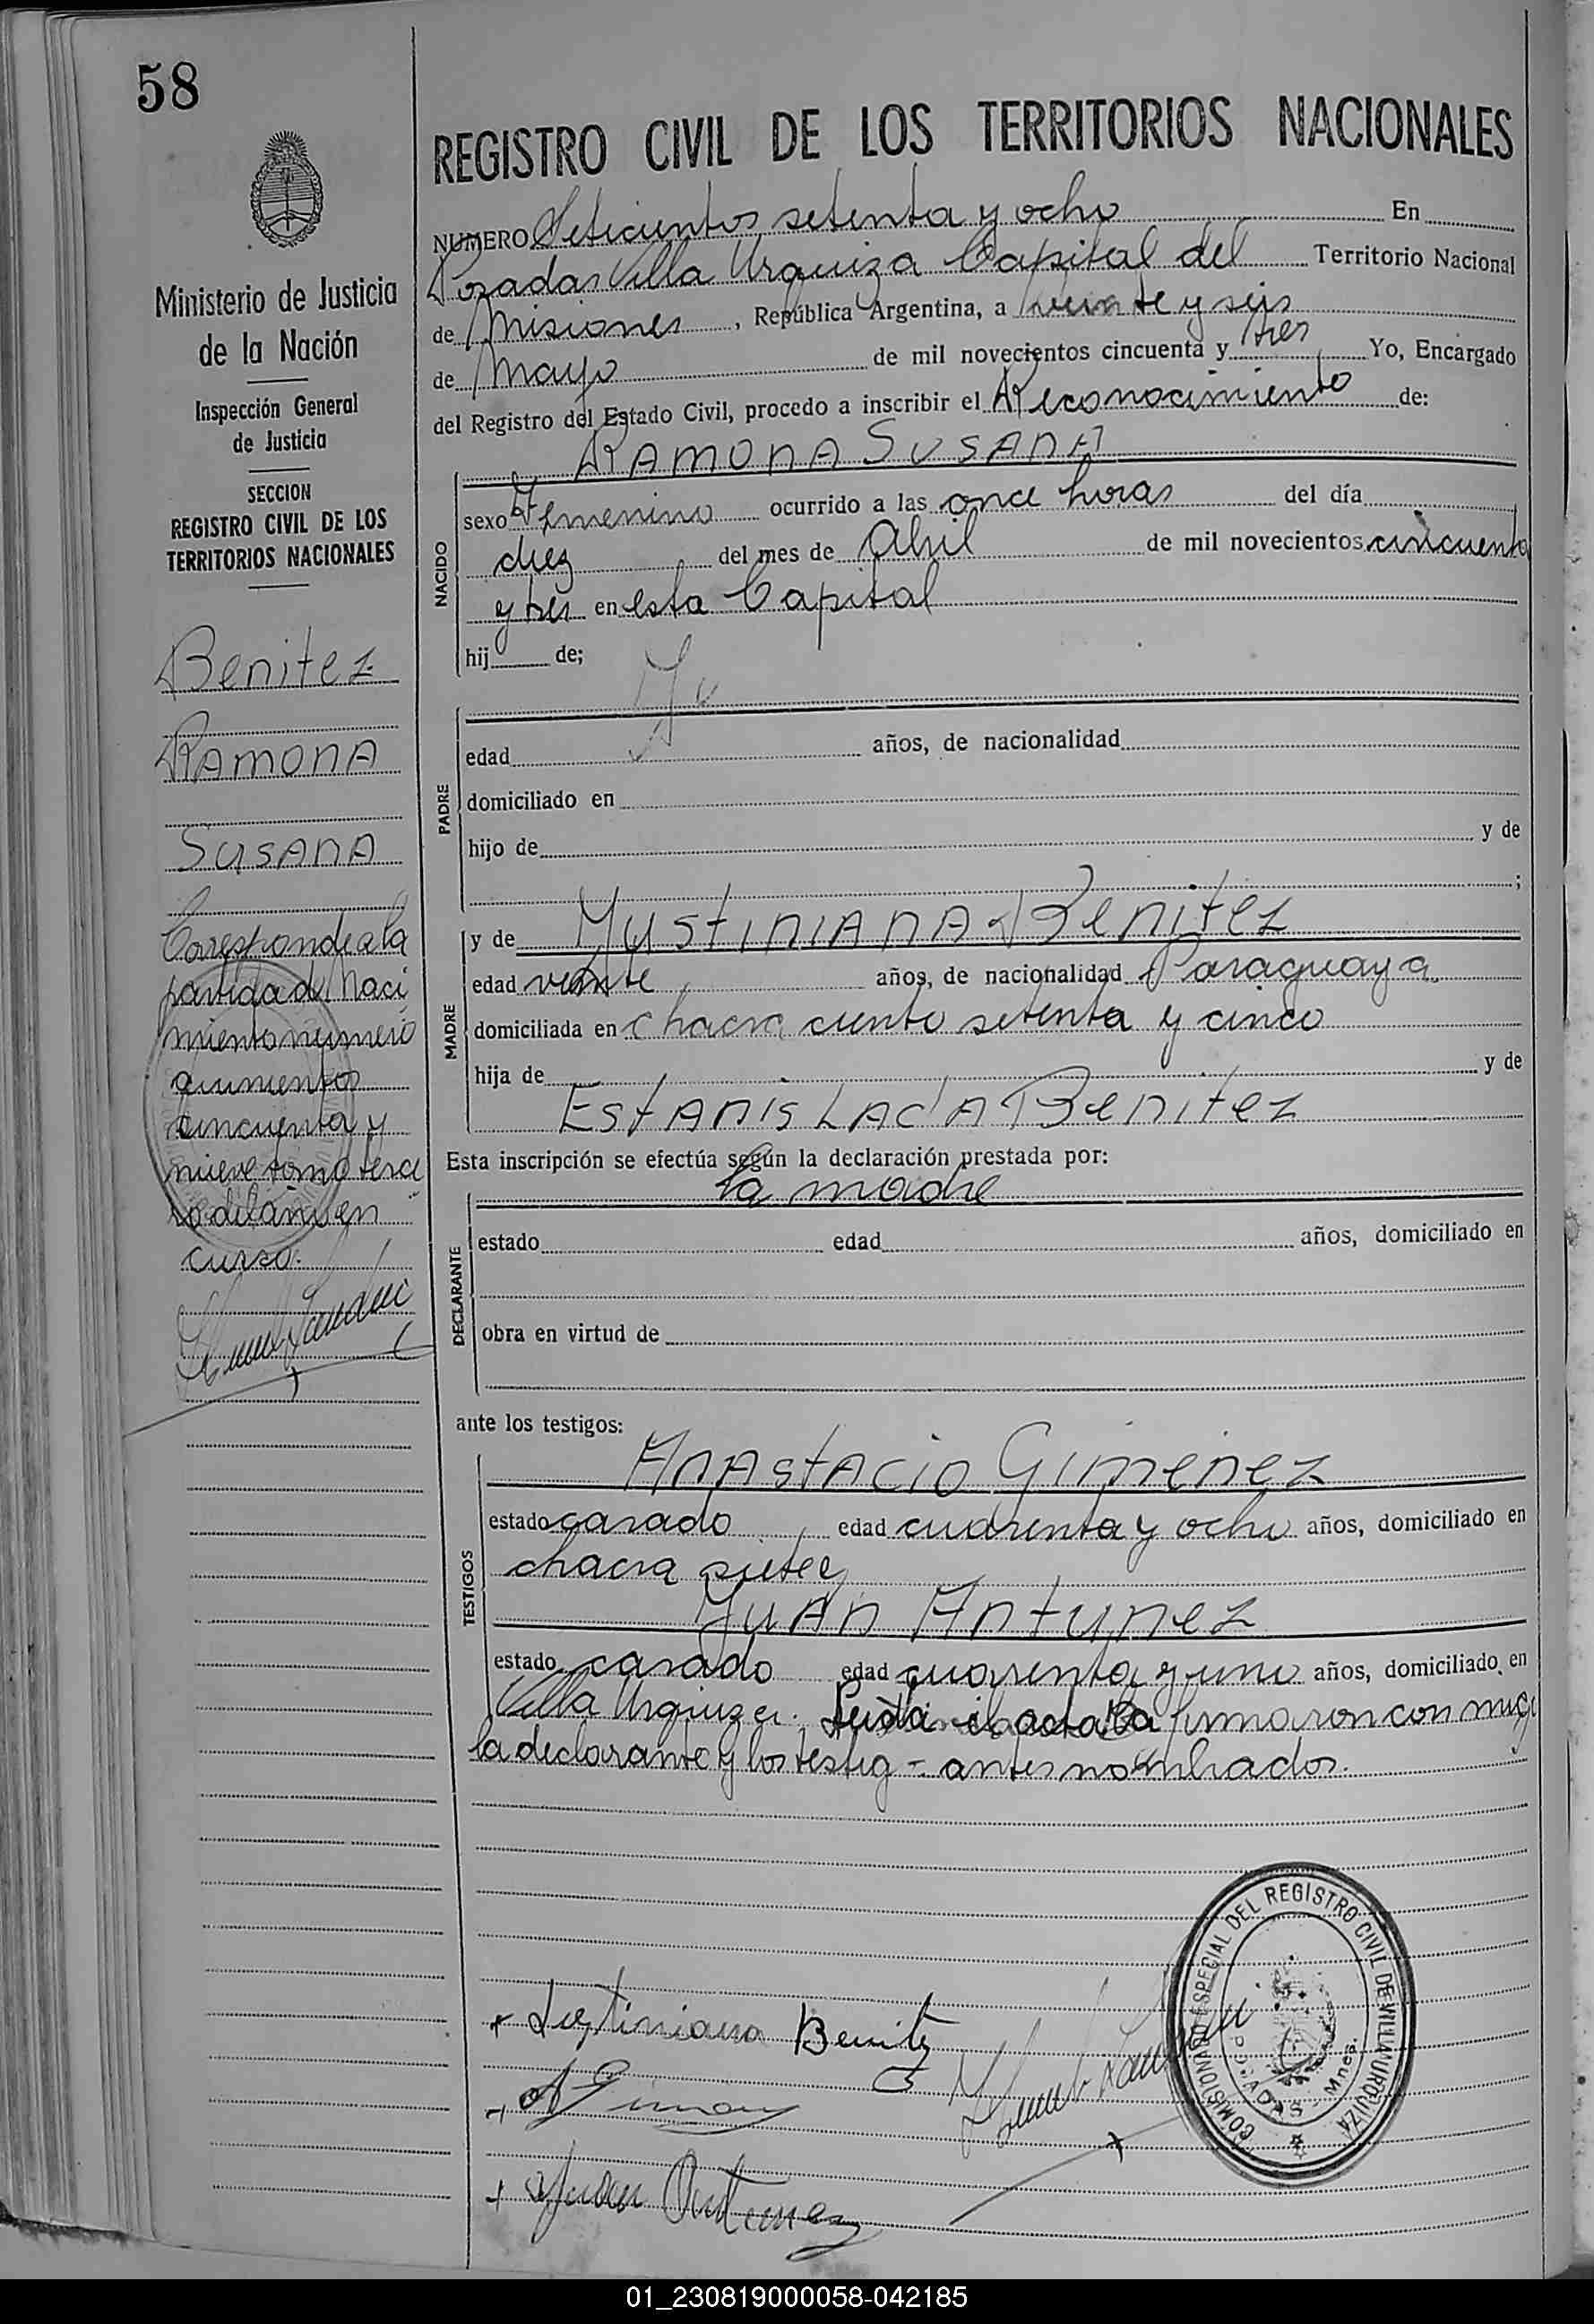 58
Ministerio de Justicia
de la Nación
Inspección General
de Justicia
SECCION
REGISTRO CIVIL DE LOS
TERRITORIOS NACIONALES
Benitez
Ramona
Susana
Corresponde a la
partida de Naci
miento numero
quinientos
cincuenta y
nueve tomo terce
ro del año en
curso.
REGISTRO CIVIL DE LOS TERRITORIOS NACIONALES
NUMERO Seticientos setenta y ocho En
Posadas Villa Urquiza Capital del Territorio Nacional
de Misiones, República Argentina, a veinte y seis
de Mayo de mil novecientos cincuenta y tres Yo, Encargado
del Registro del Estado Civil, procedo a inscribir el Reconocimiento de:
RAMONA SUSANA
NACIDO
sexo Femenino ocurrido a las once horas del día
diez del mes de Abril de mil novecientos cincuenta
y tres en esta Capital
hij de;
PADRE
edad años, de nacionalidad
domiciliado en
hijo de y de
;
MADRE
y de Justiniana Benitez
edad veinte años, de nacionalidad Paraguaya
domiciliada en chacra ciento setenta y cinco
hija de y de
Estanislada Benitez
Esta inscripción se efectúa según la declaración prestada por:
DECLARANTE
la madre
estado edad años, domiciliado en
obra en virtud de
ante los testigos:
TESTIGOS
Anastacio Gimenez
estado casado edad cuarenta y ocho años, domiciliado en
chacra siete y
Juan Antunez
estado casado edad cuarenta y uno años, domiciliado en
Villa Urquiza. Leida el acta la firmaron con migo
la declarante y los testig - antes nombrados.
Justiniana Benitez
A Gimenez
Juan Antunez
COMISIONADO ESPECIAL DEL REGISTRO CIVIL DE VILLA URQUIZA
POSADAS - Mnes.
01_230819000058-042185